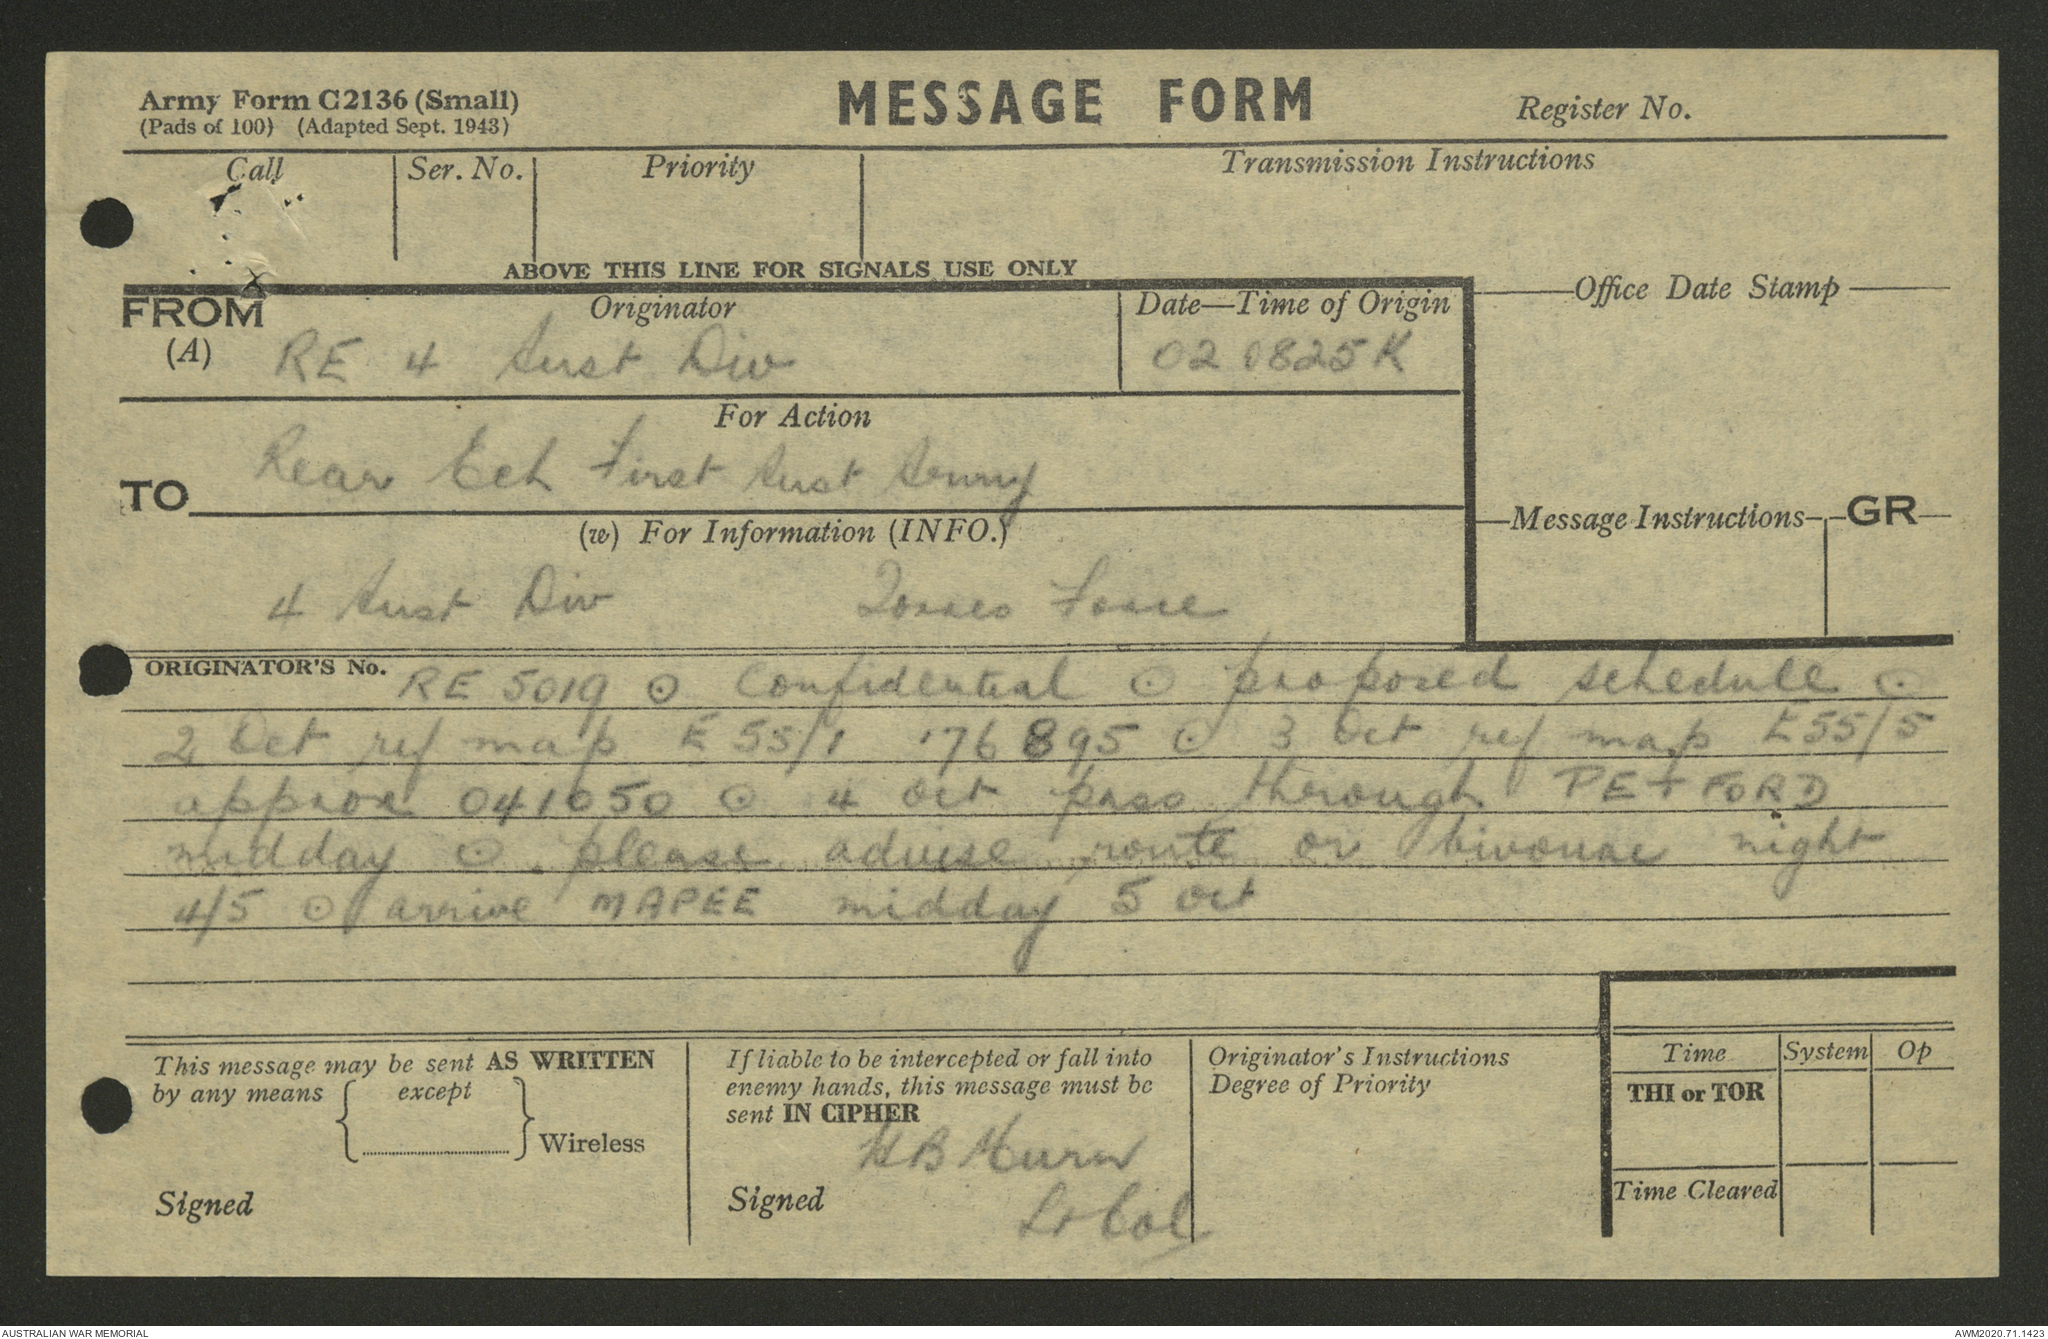 Army Form C2136 (Small)
(Pads of 100) (Adapted Sept. 1943)
MESSAGE FORM
Register No.
Call
Ser. No.
Priority
Transmission Instructions
ABOVE THIS LINE FOR SIGNALS USE ONLY
FROM
(A)
Originator
RE 4 Aust Div
Date—Time of Origin
020825K
Office Date Stamp
For Action
Rear Ech First Aust Army
TO
(w) For Information (INFO.)
4 Aust Div Torres Force
Message Instructions
GR
ORIGINATOR'S No. RE 5019 ⊙ Confidential ⊙ proposed schedule ⊙
2 Oct ref map E55/1 176895 ⊙ 3 Oct ref map E55/5
approx 041050 ⊙ 4 Oct pass through PETFORD
midday ⊙ please advise route or bivouac night
4/5 ⊙ arrive MAPEE midday 5 Oct
This message may be sent AS WRITTEN
by any means { except } Wireless
Signed
If liable to be intercepted or fall into
enemy hands, this message must be
sent IN CIPHER
Signed
Lt Col
Originator's Instructions
Degree of Priority
Time
System
Op
THI or TOR
Time Cleared
AUSTRALIAN WAR MEMORIAL
AWM2020.71.1423